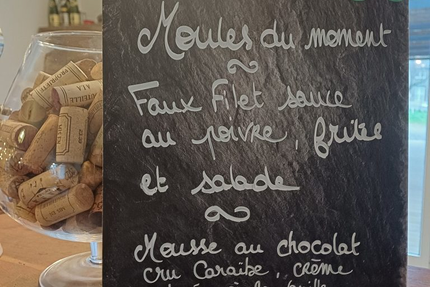 Moules du moment
Faux Filet sauce
au poivre, fritee
et salade
Mousse au chocolat
cru Caraibe, crème